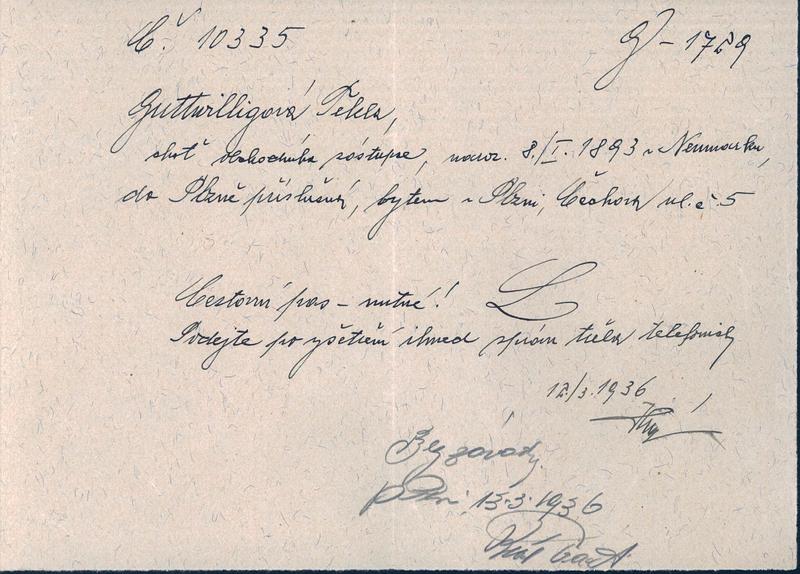 Č: 10335
G - 1729
Guttwilligová Tekla,
choť obchodního zástupce, naroz. 8./I. 1893 v Neumarku,
do Plzně příslušná, bytem v Plzni, Čechova ul. č. 5
Cestovní pas - nutné!
Podejte po vyšetření ihned zprávu třeba telefonicky
12/3. 1936
Bez závady.
Plzni, 13.3.1936